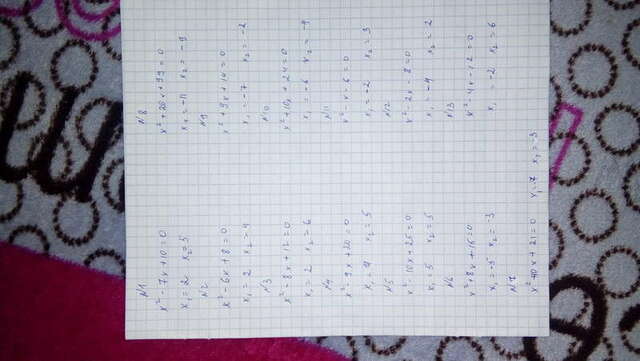 N1
x² - 7x + 10 = 0
x₁ = 2 x₂ = 5
N2
x² - 6x + 8 = 0
x₁ = 2 x₂ = 4
N3
x² - 8x + 12 = 0
x₁ = 2 x₂ = 6
N4
x² - 9x + 20 = 0
x₁ = 4 x₂ = 5
N5
x² - 10x + 25 = 0
x₁ = 5 x₂ = 5
N6
x² + 8x + 15 = 0
x₁ = -5 x₂ = -3
N7
x² + 10x + 21 = 0 x₁ = -7 x₂ = -3
N8
x² + 20x + 99 = 0
x₁ = -11 x₂ = -9
N9
x² + 9x + 14 = 0
x₁ = -7 x₂ = -2
N10
x² + 10x + 24 = 0
x₁ = -6 x₂ =
N11
x² - x - 6 = 0
x₁ = -2 x₂ = 3
N12
x² - 2x - 8 = 0
x₁ = -4 x₂ = 2
N13
x² - 4x - 12 = 0
x₁ = -2 x₂ = 6